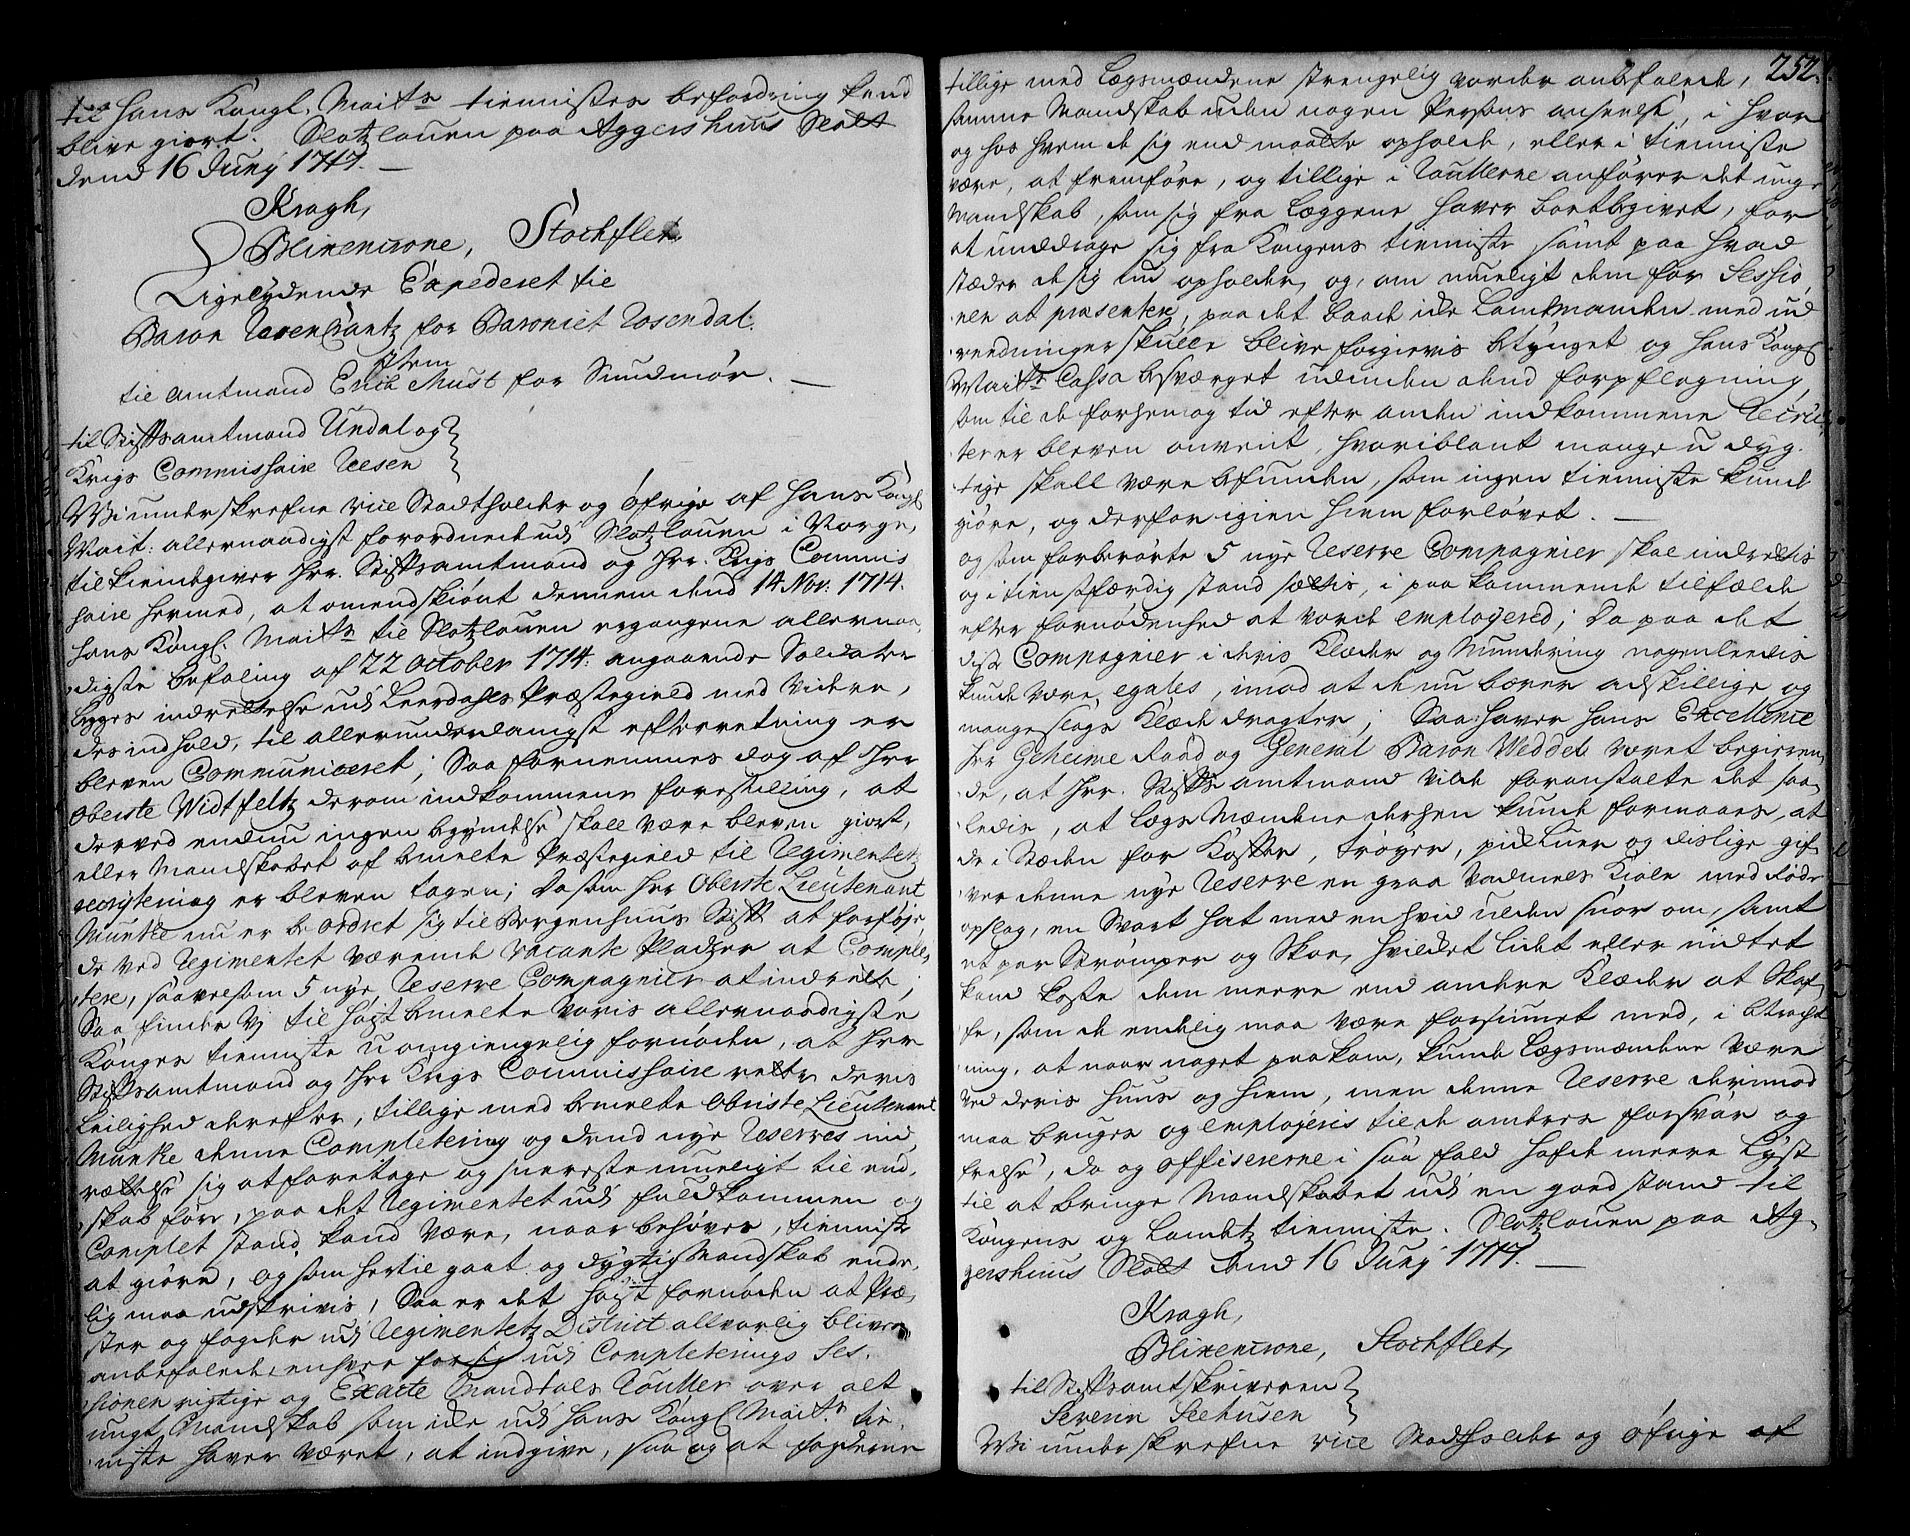 til Hans Kongl. Maits tiennistes befordring kand
blive giort. Slotzlouen paa Aggershuus Slott
dend 16 Junij 1717.
Kragh,
Blixencrone, Stochflet
Ligelydende Expederet til
Baron Rosencrantz for Baroniet Rosendal.
Item
til amtmand Erich Must for Sundmør.
til Stiftsamtmand Undal og
Krigs Commissaire Reesen
Wi underskrefne vice Stadtholder og øfrige af Hans Kongl
Mait: allernaadigst forordnede udj Slotzlouen i Norge,
tilkiendegiver Hrr. Stiftsamtmand og Hrr. Krigs Commis
saire hermed, at omendskiønt dennem dend 14 Nov: 1714.
Hans Kongl. Maits til Slotzlouen ergangene allernaa,
digste befaling af 22 October 1714. angaaende Soldater
legges indrettelse udj Leerdahls Præstegield med videre,
des indhold, til allerunderdanigst efterretning er
bleven Communiceret; Saa fornemmes dog af Hrr
Oberste Widtfeltz derom indkommene forestilling, at
derved endnu ingen begyndelse skall være bleven giort,
eller Mandskabet af bemelte Præstegield til Regimentetz
recrutering er bleven tagen; Da som Hrr Oberste Lieutenant
Munke nu er beordret sig til Bergenhuus Stift at forføje
de ved Regimentet værende vacante Pladzer at Comple,
tere, saavelsom 5 nye Reserve Compagnier at indrette;
Saa finder Vj til høystbemelte Voris allernaadigste
Konges tienniste uomgiengelig fornøden, at Hrr
Stiftsamtmand og Hrr Krigs Commissaire rette deris
Leilighed derefter, tillige med bemelte Obriste Lieutenant
Munke denne Completering og dend nye Reserves ind,
rettelse sig at foretage og sneereste mueligt til end,
skab føre, paa det Regimentet udj fuldkommen og
Complet stand kand være, naar behøves, tienniste
at giøre, og som hertil gaat og dygtig Mandskab ende,
lig maa udskrivis, Saa er det høyst fornøden at Præ,
ster og fogder udj Regimentetz District alvorlig bliver
anbefalede, enhver for sig udj Completerings Ses,
sionen rigtige og Exacte Mandtals Roulller over alt
ungt Mandskab som icke udj Hans Kongl Maits tie,
niste haver været, at indgive, saa og at fogderne
252.
tillige med Lægsmændene strengelig vorder anbefalede,
samme Mandskab uden nogen Persons anseelse, i hvor
og hos hvem de sig end maatte opholde, eller i tienniste
være, at fremføre, og tillige i Roullerne anfører det unge
Mandskab, som sig fra Læggene haver bortbegivet, for
at unddrage sig fra Kongens tienniste samt paa hvad
stæder de sig nu opholder og, om mueligt dem for Sessio
nen at præsentere, paa det baade icke Landmanden med ud
reedninger skulle blive forgiæves betynget og Hans Kongl
Maits Cassa besværget udinden dend forpflegning,
som til de forhen og tid efter anden indkommene Recru,
terer bleven anvent, hvoriblant mange u dyg,
tige skall være befunden, som ingen tienniste kunde
giøre, og derfor igien hiem forlovet.
og som forberørte 5 nye Reserve Compagnier skal indrettis
og i tienstfærdig stand sættis, i paa kommende tilfælde
efter fornødenhed at vorde employered; Da paa det
disse Compagnier i deris Klæder og Mundering nogenleedis
kunde være egales, imod at de nu bærer adskillige og
mangeslags Klæde dragter; Saa haver Hans Excellence
Hr Geheime Raad og General Baron Weddel været begieren,
de, at Hrr. Stiftsamtmand vilde foranstalte det saa,
ledis, at Lægs Mændene derhen kunde formaaes, at
de i Stæden for Kofter, trøyer, pidluer og deslige gif,
ver denne nye Reserve en graa Vadmels Kiole med Røde
opslag, en Svart hat med en hvid ulden snor om, samt
et par Strømper og Skoe, hvilket lidet eller indtet
kand koste dem meere end andre Klæder at Skaf,
fe, som de endelig maa være forsiunet med, i Betragt
ning, at naar noget paakom, kunde Lægsmændene være
ved deris huus og hiem, men denne Reserve derimod
maa bruges og employeris til de andres forsvar og
frelse, da og officererne i saa fald hafde meere Lyst
til at bringe Mandskabet udj en goed stand til
Kongens og Landetz tienniste. Slotzlouen paa Ag,
gershuus Slott dend 16 Junij 1717.
Kragh,
Blixencrone, Stochflet,
til Stiftsamtskriveren
Severin Seehusen
Wi underskrefne vice Stadtholder og øfrige af